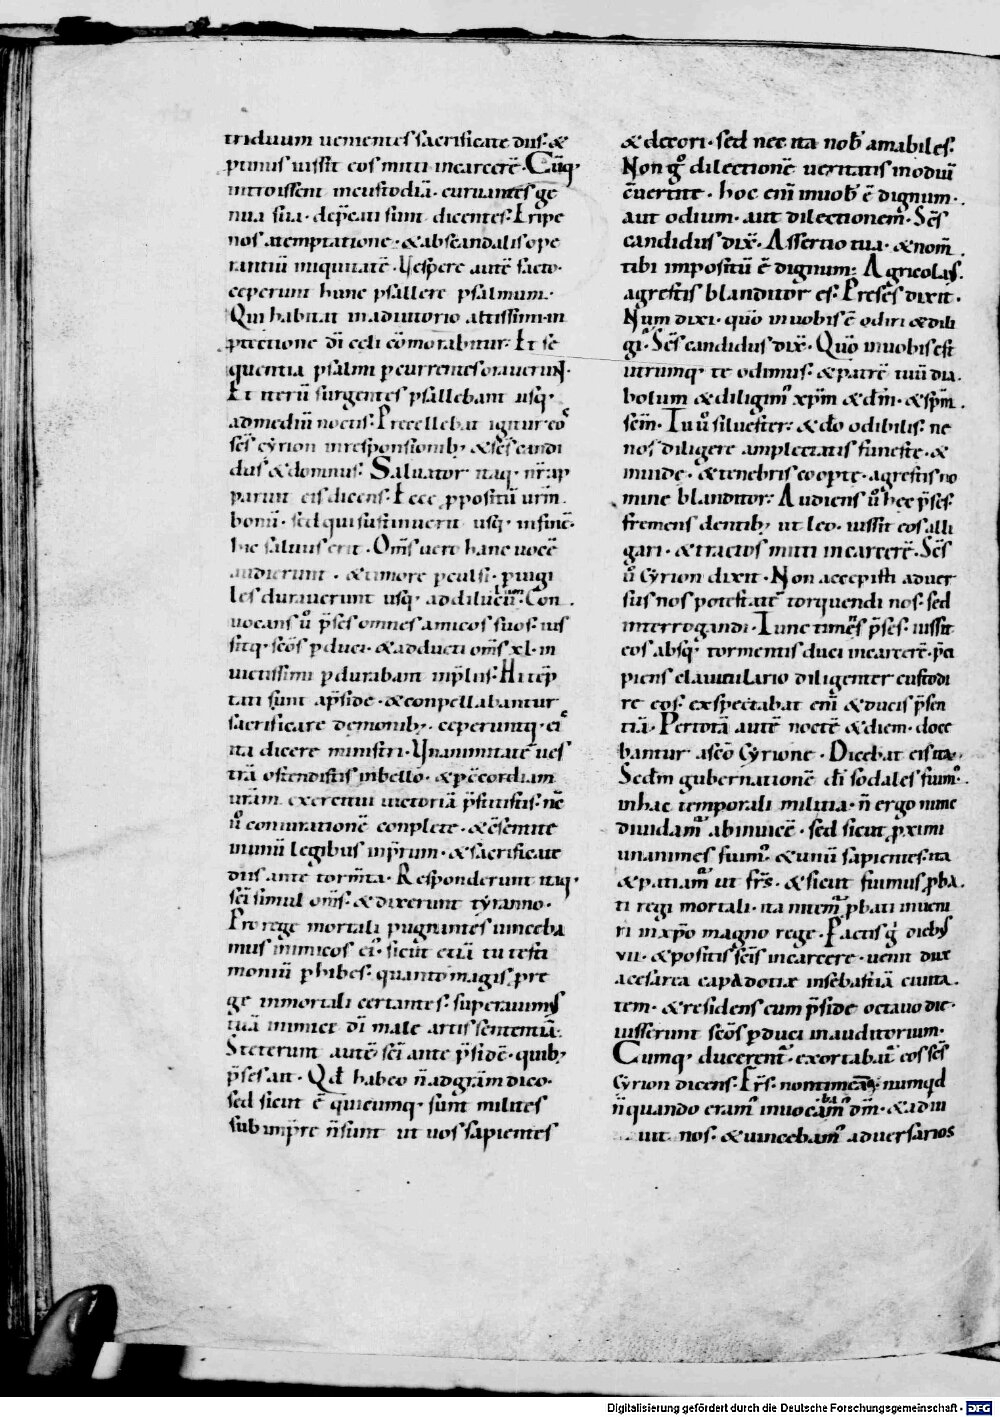 triduum uementes sacrificate diis· &
ptinus iussit eos mitti incarcerē· Cūq·
introissent incustodiā· curuantes ge
nua sua· dep̄cati sunt dicentes· Eripe
nos atemptatione· & abscandalis ope
rantiū iniquitatē· Vespere autē facto·
ceperunt hunc psallere psalmum·
Qui habitat inadiutorio altissimi· in
ꝓtectione dī celi cōmorabitur· Et se
quentia psalmi ꝑcurrentes orauerunt·
Et iterū surgentes psallebant usq·
admediū noctis· Precellebat igitur eoˢ
sc̄s cyrion inresponsionib; & sc̄s candi
dus & domnus· Saluator itaq· nr̄ ap
paruit eis dicens· Ecce ꝓpositū urm̄
bonū· sed qui sustinuerit usq· infinē·
hic saluus erit· Om̄s uero hanc uocē
audierunt· & timore ꝑculsi· ꝑuigi
les durauerunt usq· addiluculū· Con
uocans u̇ p̄ses omnes amicos suos· ius
sitq· sc̄os ꝑduci· & adducti om̄s xl· in
uictissimi ꝑdurabant
tati sunt ap̄side· & conpellabantur
sacrificare demonib; ceperuntq· eiˢ
ita dicere ministri· Vnanimitatē ues
trā ostendistis inbello· & p̄cordiam
urām exercitui uictoriā p̄stitistis· nc̄
u̇ coniurationē conplete· & c̄sentite
inimū legibus inp̄rum· & sacrificate
diis ante torm̄ta· Responderunt itaq·
sc̄i simul om̄s· & dixerunt tyranno·
Pro rege mortali pugnantes uinceba
mus inimicos ei᾽ sicut etiā tu testi
moniū ꝑhibes· quanto magis ꝓ re
ge inmortali certantes· superauimus
tuā inimice dī male artis sententiā·
Steterunt autē sc̄i ante p̄sidē· quib;
p̄ses ait· Qd̄ habeo n̄ adgrām dico·
sed sicut ē quicumq· sunt milites
sub imp̄re n̄ sunt ut uos sapientes
& decori· sed nec ita nob̄ amabiles·
Non g̊ dilectionē ueritatis inodiū
c̄uertite· hoc enī inuob̄ ē dignum·
aut odium· aut dilectionem· Sc̄s
candidus dix̄· Assertio tua· & nom̄
tibi impositū ē dignum· Agricolas·
agrestis blanditor es· Preses̄ dixit·
Num dixi· quo inuobis ē odiri & dili
gi· Sc̄s candidus dix̄· Quō inuobis est
utrumq· te odimus· & patrē tuū dia
bolum & diligim᾽ xp̄m & dn̄m· & sp̄m
sc̄m· Tu u̇ siluester· & dō odibilis· ne
nos diligere amplectatis funeste· &
munde· & tenebris coopte· agrestis no
mine blanditor· Audiens u̇ hec p̄ses·
fremens dentib; ut leo· iussit eos alli
gari· & tractos mitti incarcerē· Sc̄s
u̇ Cyrion dixit· Non accepisti aduer
sus nos potestatē torquendi nos· sed
interrogandi· Tunc timēs p̄ses· iussit
eos absq· tormentis duci incarcerē· p̄ci
piens clauiculario diligenter custodi
re eos· exspectabat enī & ducis p̄sen
tiā· Per totā autē noctē & diem· doce
bantur asc̄o Cyrione· Dicebat eis ita·
Sedm̄ gubernationē dī sodales fium᾽·
inhac temporali militia· n̄ ergo nunc
diuidam᾽ abinuicē· sed sicut ꝓximi
unanimes fium᾽ & unū sapientes· ita
& patiam᾽ ut fr̄s· & sicut fiumus ꝓba
ti regi mortali· ita nitem᾽ ꝓbati inueni
ri inxp̄o magno rege· Pactis g̊ dieb;
vii· & positis sc̄is incarcere· uenit dux
acesarea capadotiæ insebastiā ciuita
tem· & residens cum p̄side octauo die·
iusserunt sc̄os ꝑduci inauditorium·
Cumq· ducerent᾽· exortabat᾽ eos sc̄s
Cyrion dicens· Fr̄s· nontimeam᾽ numqd
n̄ quando eram᾽ inuocabam᾽ dm̄· & adiu
uit nos· & uincebam᾽ aduersarios
Digitalisierung gefördert durch die Deutsche Forschungsgemeinschaft - DFG